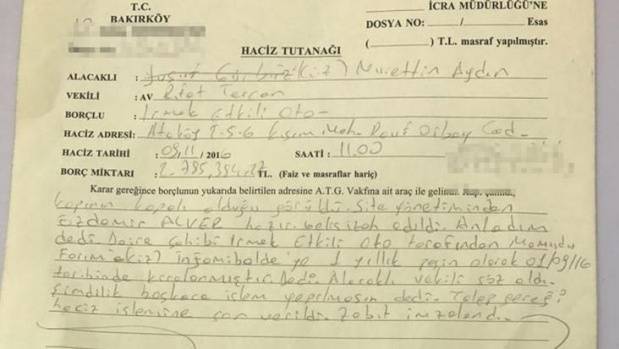 T.C.
BAKIRKÖY
İCRA MÜDÜRLÜĞÜ'NE
DOSYA NO: / Esas
( ) T.L. masraf yapılmıştır.
HACİZ TUTANAĞI
ALACAKLI : Nurettin Aydın
VEKİLİ : AV Rıfat Tercan
BORÇLU : Irmak Etkili Oto-
HACİZ ADRESİ: Ataköy 2-5-6 Kısım Mah. Rauf Orbay Cad-
HACİZ TARİHİ : 09/11/2016 SAATİ : 11.00
BORÇ MİKTARI : 2.785,394. TL. (Faiz ve masraflar hariç)
Karar gereğince borçlunun yukarıda belirtilen adresine A.T.G. Vakfına ait araç ile gelindi.
kapının kapalı olduğu görüldü. Site yönetiminden
Eizdemir ALVER hazır. belis izah edildi. Anladım
dedi Daire sahibi Irmak Etkili Oto tarafından
1 yıllık peşin olarak 01/09/16
tarihinde kiralanmıştır. Dedi. Alacaklı vekili söz aldı.
Şimdilik başkaca işlem yapılmasın dedi. Talep gereği
haciz işlemine son verildi. Zabıt imzalandı.